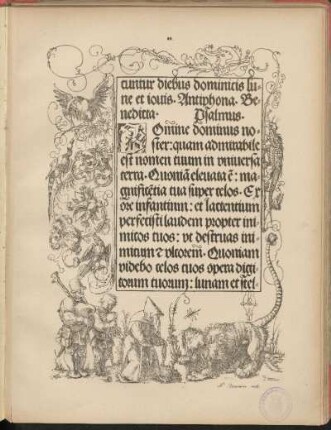 cuntur diebus dominicis lu-
ne et iouis. Antiphona. Be-
nedicta. Psalmus.
Domine dominus no-
ster: quam admirabile
est nomen tuum in vniuersa
terra. Quoniā eleuata ē: ma-
gnificētia tua super celos. Ex
ore infantium: et lactentium
perfecisti laudem propter ini-
micos tuos: vt destruas ini-
micum ⁊ vltorem. Quoniam
videbo celos tuos opera digi-
torum tuorum: lunam et stel-